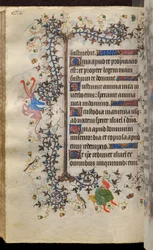 sustinebit.
Quia apud te propiciatio
est: et propter legem tuam
sustinui te domine.
Sustinuit anima mea in
verbo eius: speravit anima
mea in domino.
A custodia matutina usq
ad noctem speret israel i do
Quia apud dominum
misericordia et copiosa apud
eum redemptio.
Et ipse redimet israel ex
omnibus iniquitatibus eius